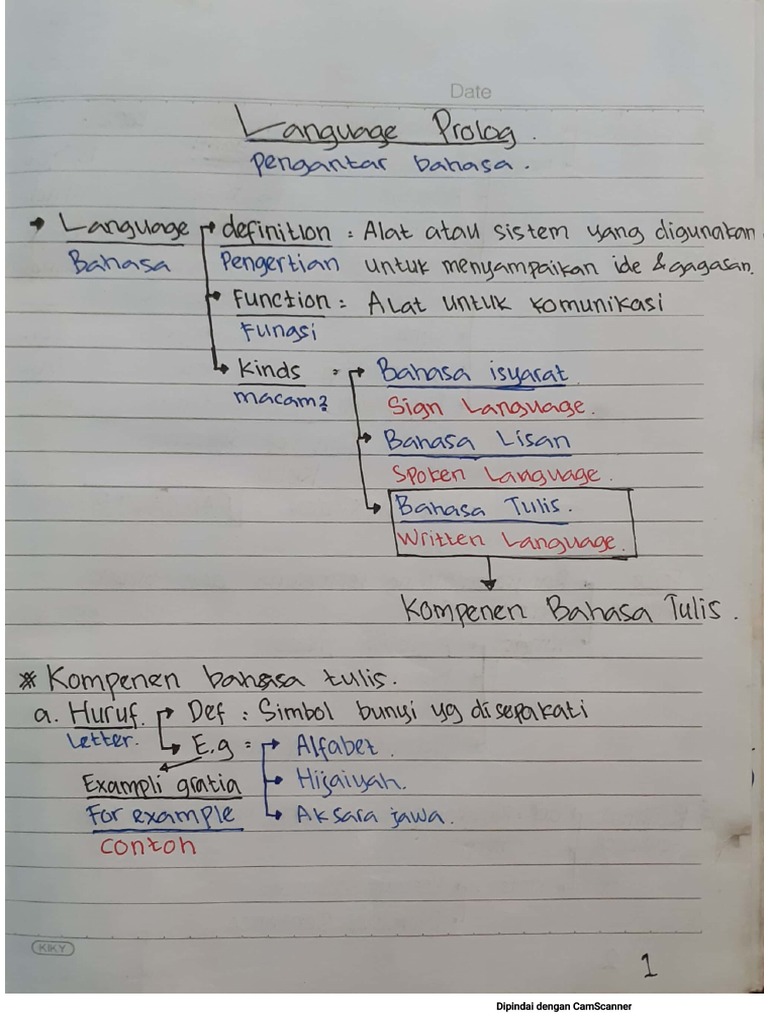 Date
Language Prolog.
pengantar bahasa.
Language definition : Alat atau sistem yang digunakan
Bahasa Pengertian untuk menyampaikan ide & gagasan.
Function = Alat untuk komunikasi
Fungsi
Kinds = Bahasa isyarat
macam2 Sign Language.
Bahasa Lisan
Spoken Language.
Bahasa Tulis.
Written Language.
Kompenen Bahasa Tulis.
* Kompenen bahasa tulis.
a. Huruf. Def : Simbol bunyi yg disepakati
Letter. E.g = Alfabet.
Exampli gratia Hijaiyah.
For example Aksara jawa.
contoh
KIKY
1
Dipindai dengan CamScanner